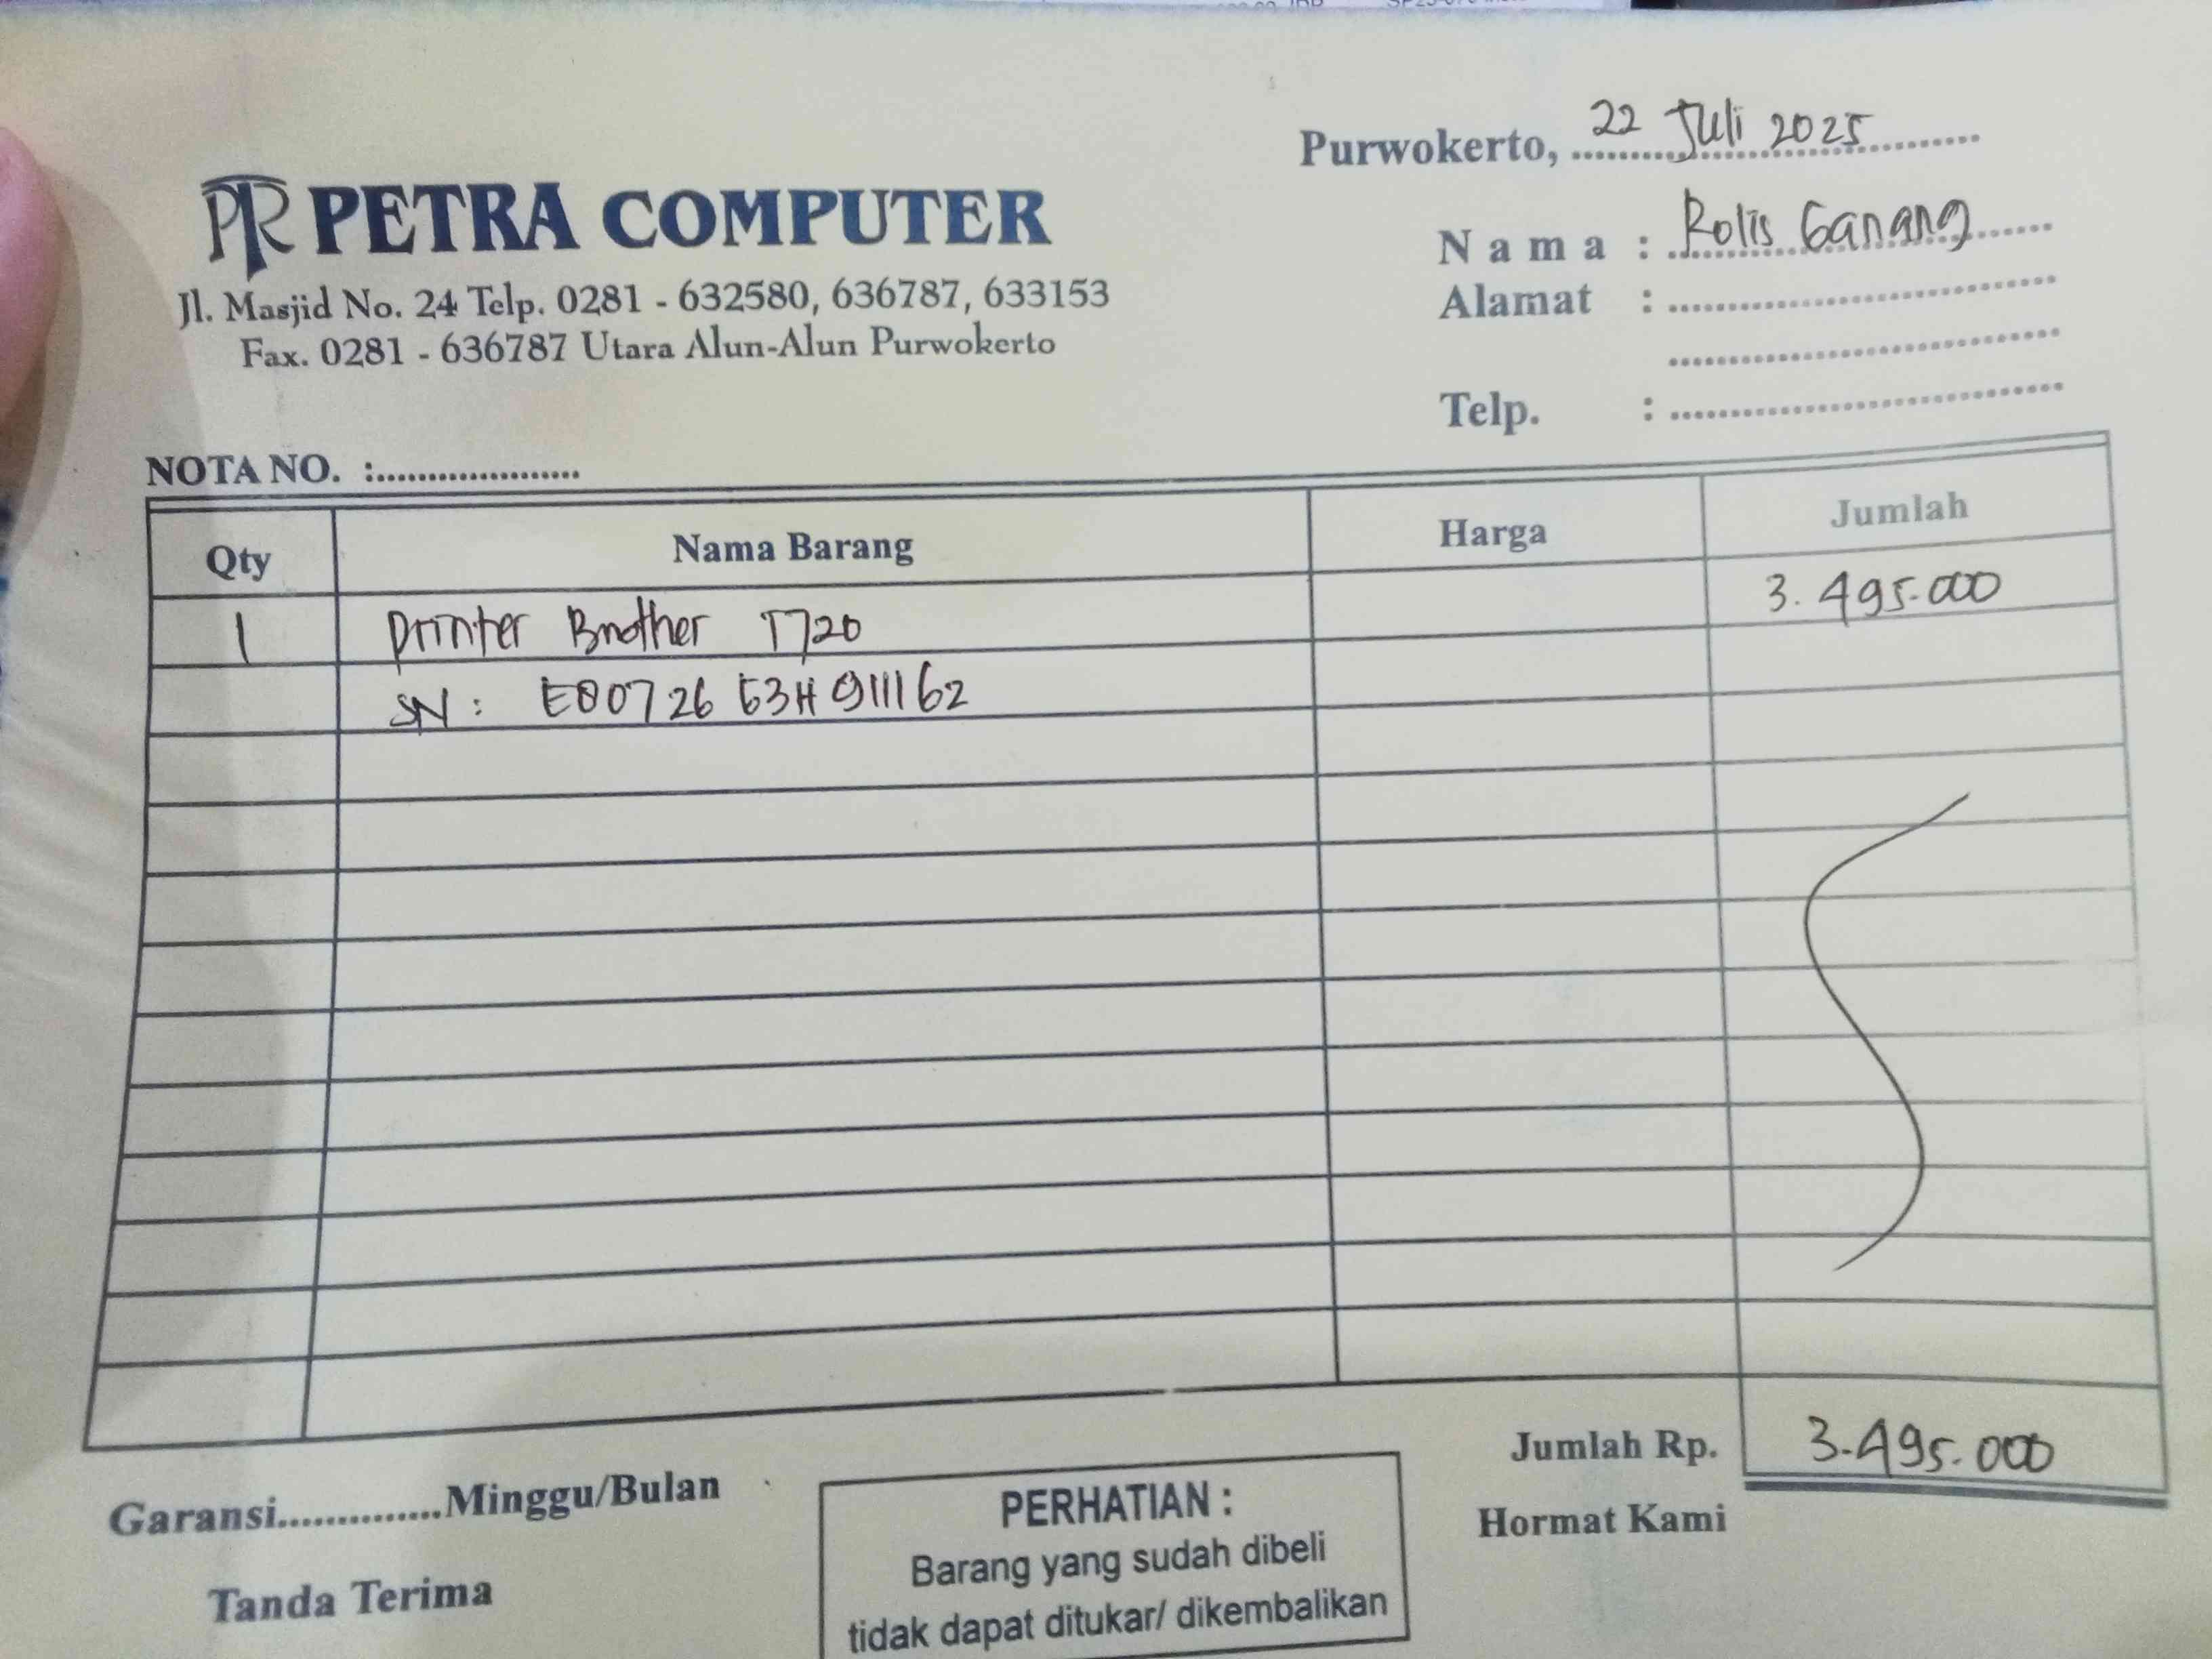 Purwokerto, 22 Juli 2025
PR PETRA COMPUTER
Jl. Masjid No. 24 Telp. 0281 - 632580, 636787, 633153
Fax. 0281 - 636787 Utara Alun-Alun Purwokerto
Nama : Rolis Ganang
Alamat :
Telp. :
NOTA NO. :
Qty Nama Barang Harga Jumlah
1 Printer Brother T720 3.495.000
SN : E80726 E3H 911162
Jumlah Rp. 3.495.000
Garansi..............Minggu/Bulan
Hormat Kami
Tanda Terima
PERHATIAN :
Barang yang sudah dibeli
tidak dapat ditukar/ dikembalikan